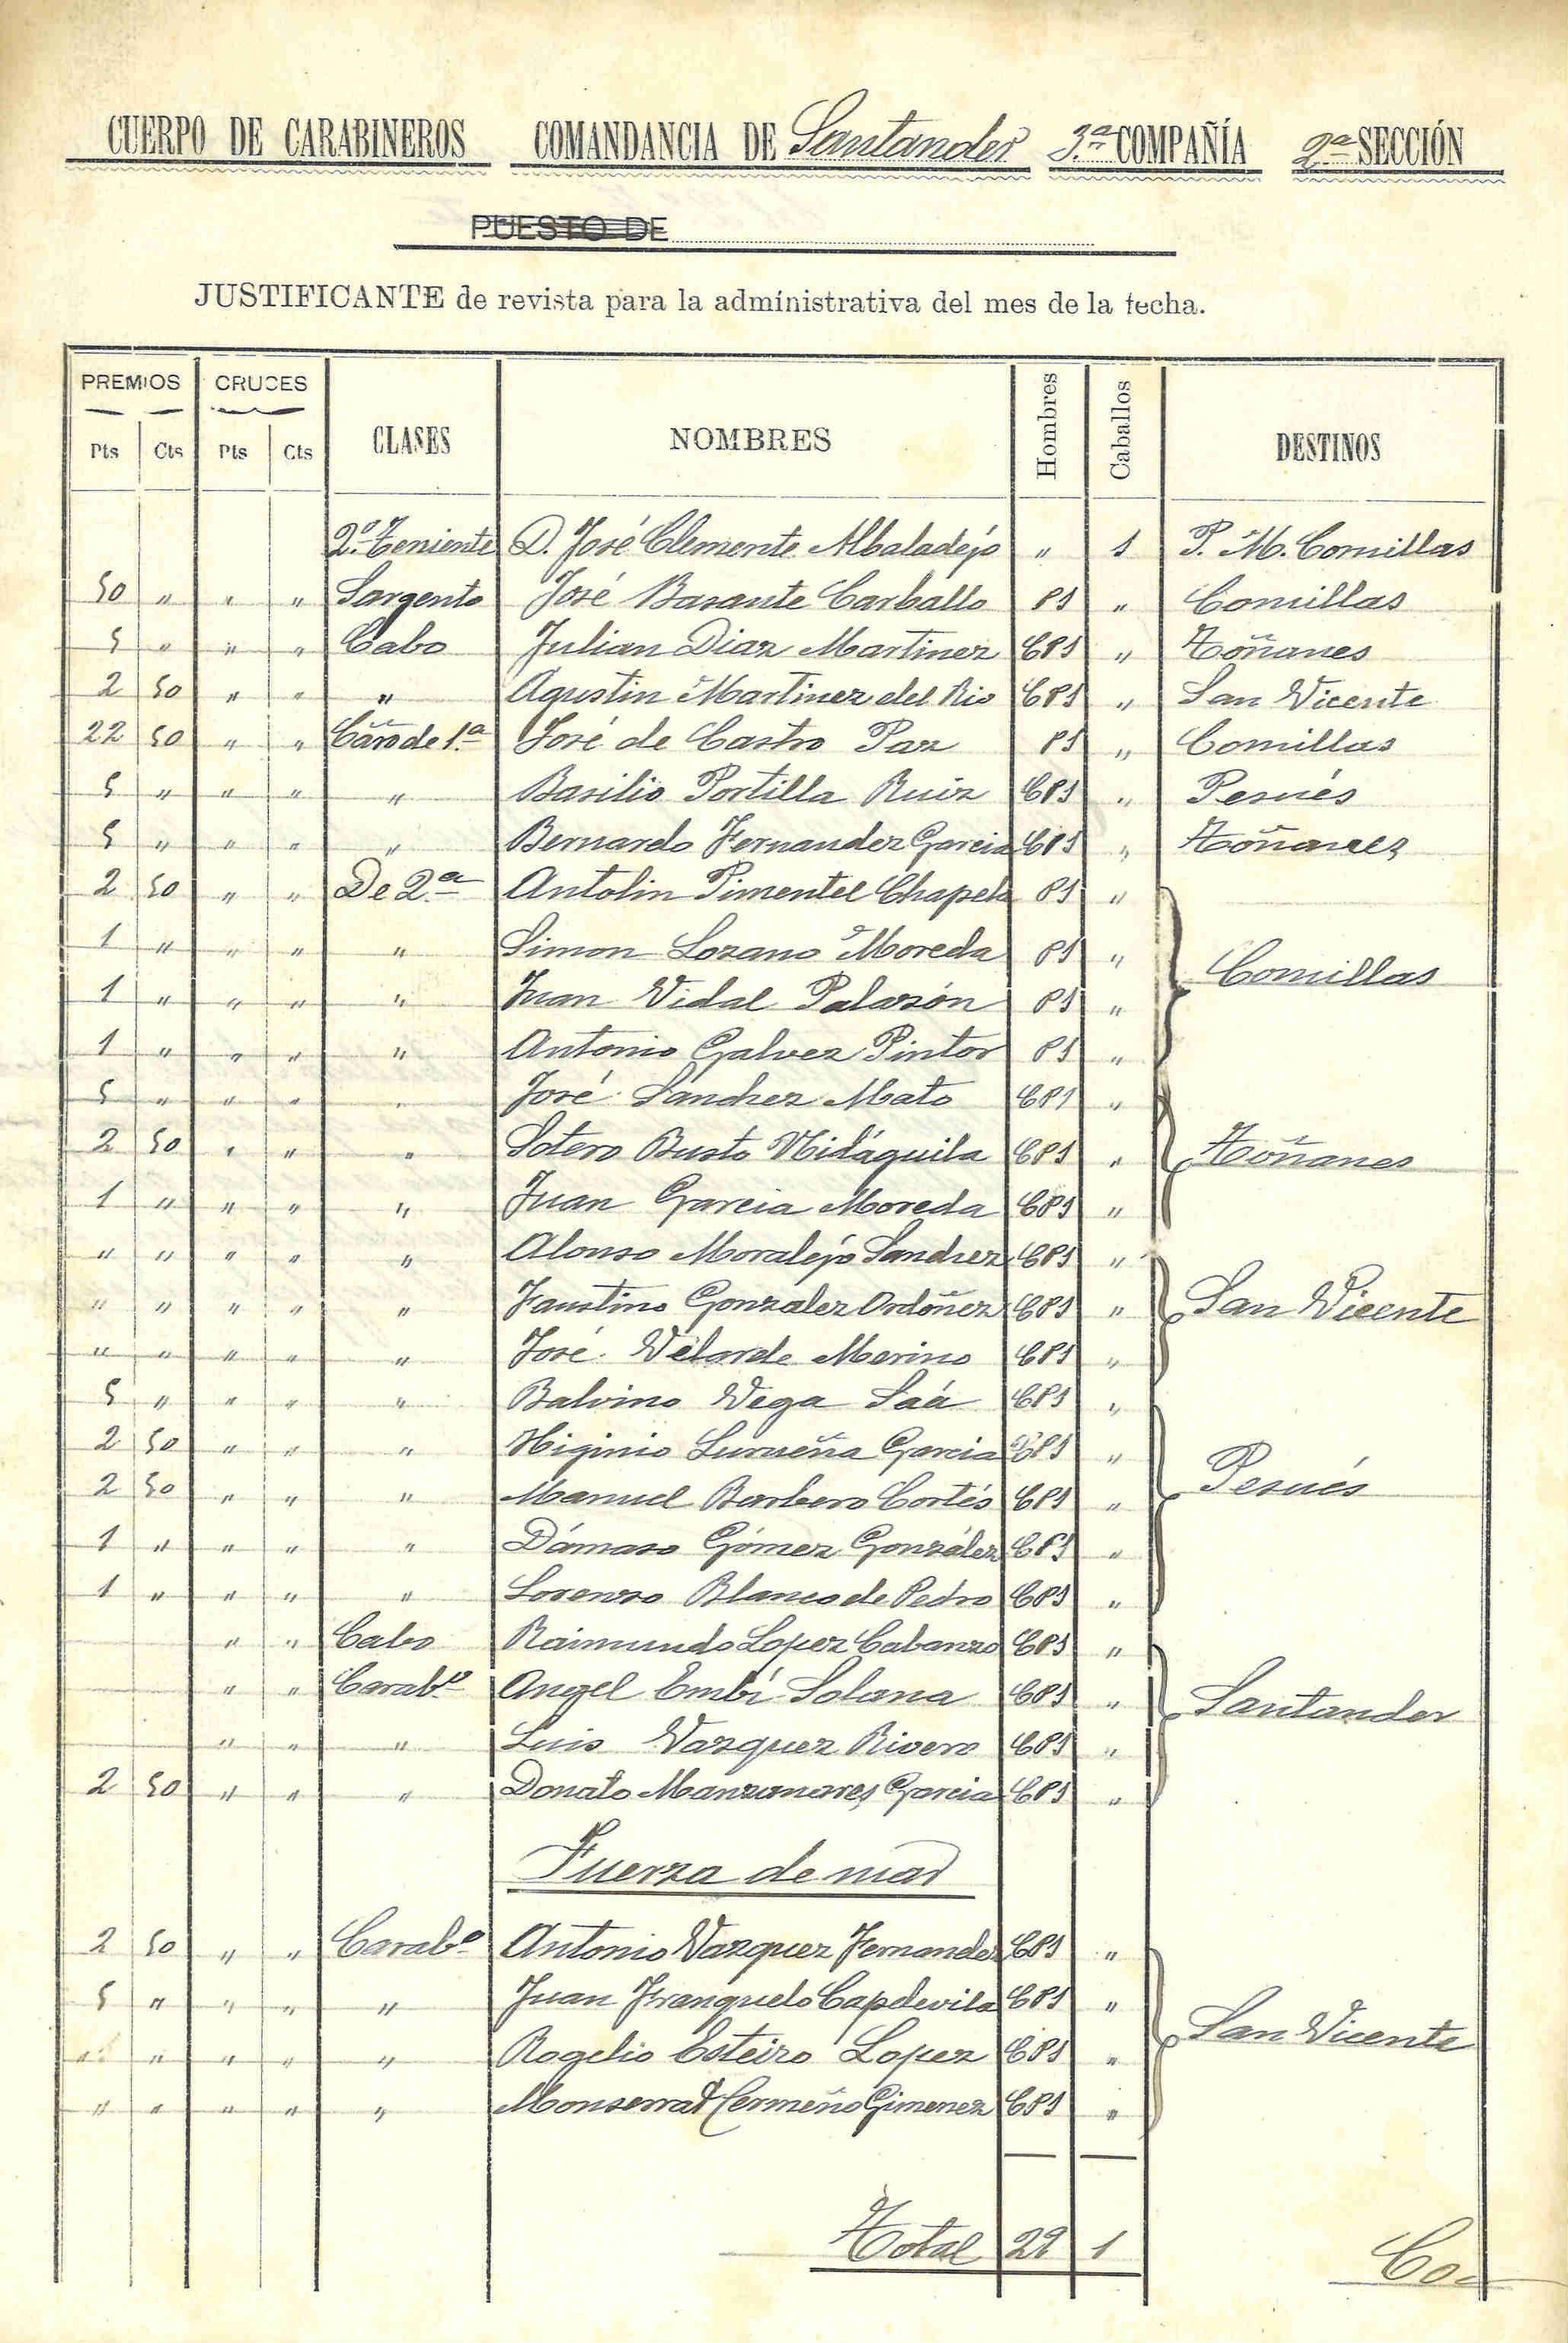 CUERPO DE CARABINEROS COMANDANCIA DE Santander 3.ª COMPAÑÍA 2ª SECCIÓN
PUESTO DE
JUSTIFICANTE de revista para la administrativa del mes de la fecha.
PREMIOS CRUCES CLASES NOMBRES Hombres Caballos DESTINOS
Pts Cts Pts Cts
2.º Teniente D. José Clemente Albaladéjo " 1 P. M. Comillas
50 " " " Sargento José Basante Carballo P1 " Comillas
5 " " " Cabo Julian Diaz Martinez CP1 " Toñanes
2 50 " " " Agustin Martinez del Rio CP1 " San Vicente
22 50 " " Caro de 1.ª José de Castro Paz P1 " Comillas
5 " " " " Basilio Portilla Ruiz CP1 " Pesués
5 " " " " Bernardo Fernandez Garcia CP1 " Toñanes
2 50 " " De 2.ª Antolin Pimentel Chapela P1 "
1 " " " " Simon Lozano Moreda P1 " Comillas
1 " " " " Juan Vidal Palazón P1 "
1 " " " " Antonio Galvez Pintor P1 "
5 " " " " José Sánchez Mato CP1 "
2 50 " " " Sotero Busto Midáguila CP1 " Toñanes
1 " " " " Juan Garcia Moreda CP1 "
" " " " " Alonso Moraléjo Sanchez CP1 "
" " " " " Faustino Gonzalez Ordóñez CP1 " San Vicente
" " " " " José Velarde Merino CP1 "
5 " " " " Balvino Vega Saá CP1 "
2 50 " " " Higinio Lurueña Garcia CP1 " Pesués
2 50 " " " Manuel Barbero Cortés CP1 "
1 " " " " Dámaso Gómez González CP1 "
1 " " " " Lorenzo Blanco de Pedro CP1 "
" " Cabo Raimundo Lopez Cabanzo CP1 "
" " Carab.º Angel Embí Solana CP1 " Santander
" " " Luis Vazquez Rivero CP1 "
2 50 " " " Donato Manzanares Garcia CP1 "
Fuerza de mar
2 50 " " Carab.º Antonio Vazquez Fernandez CP1 "
5 " " " " Juan Franquelo Capdevila CP1 "
" " " " " Rogelio Esteiro Lopez CP1 " San Vicente
" " " " " Monserrat Cermeño Gimenez CP1 "
Total 29 1
Co-